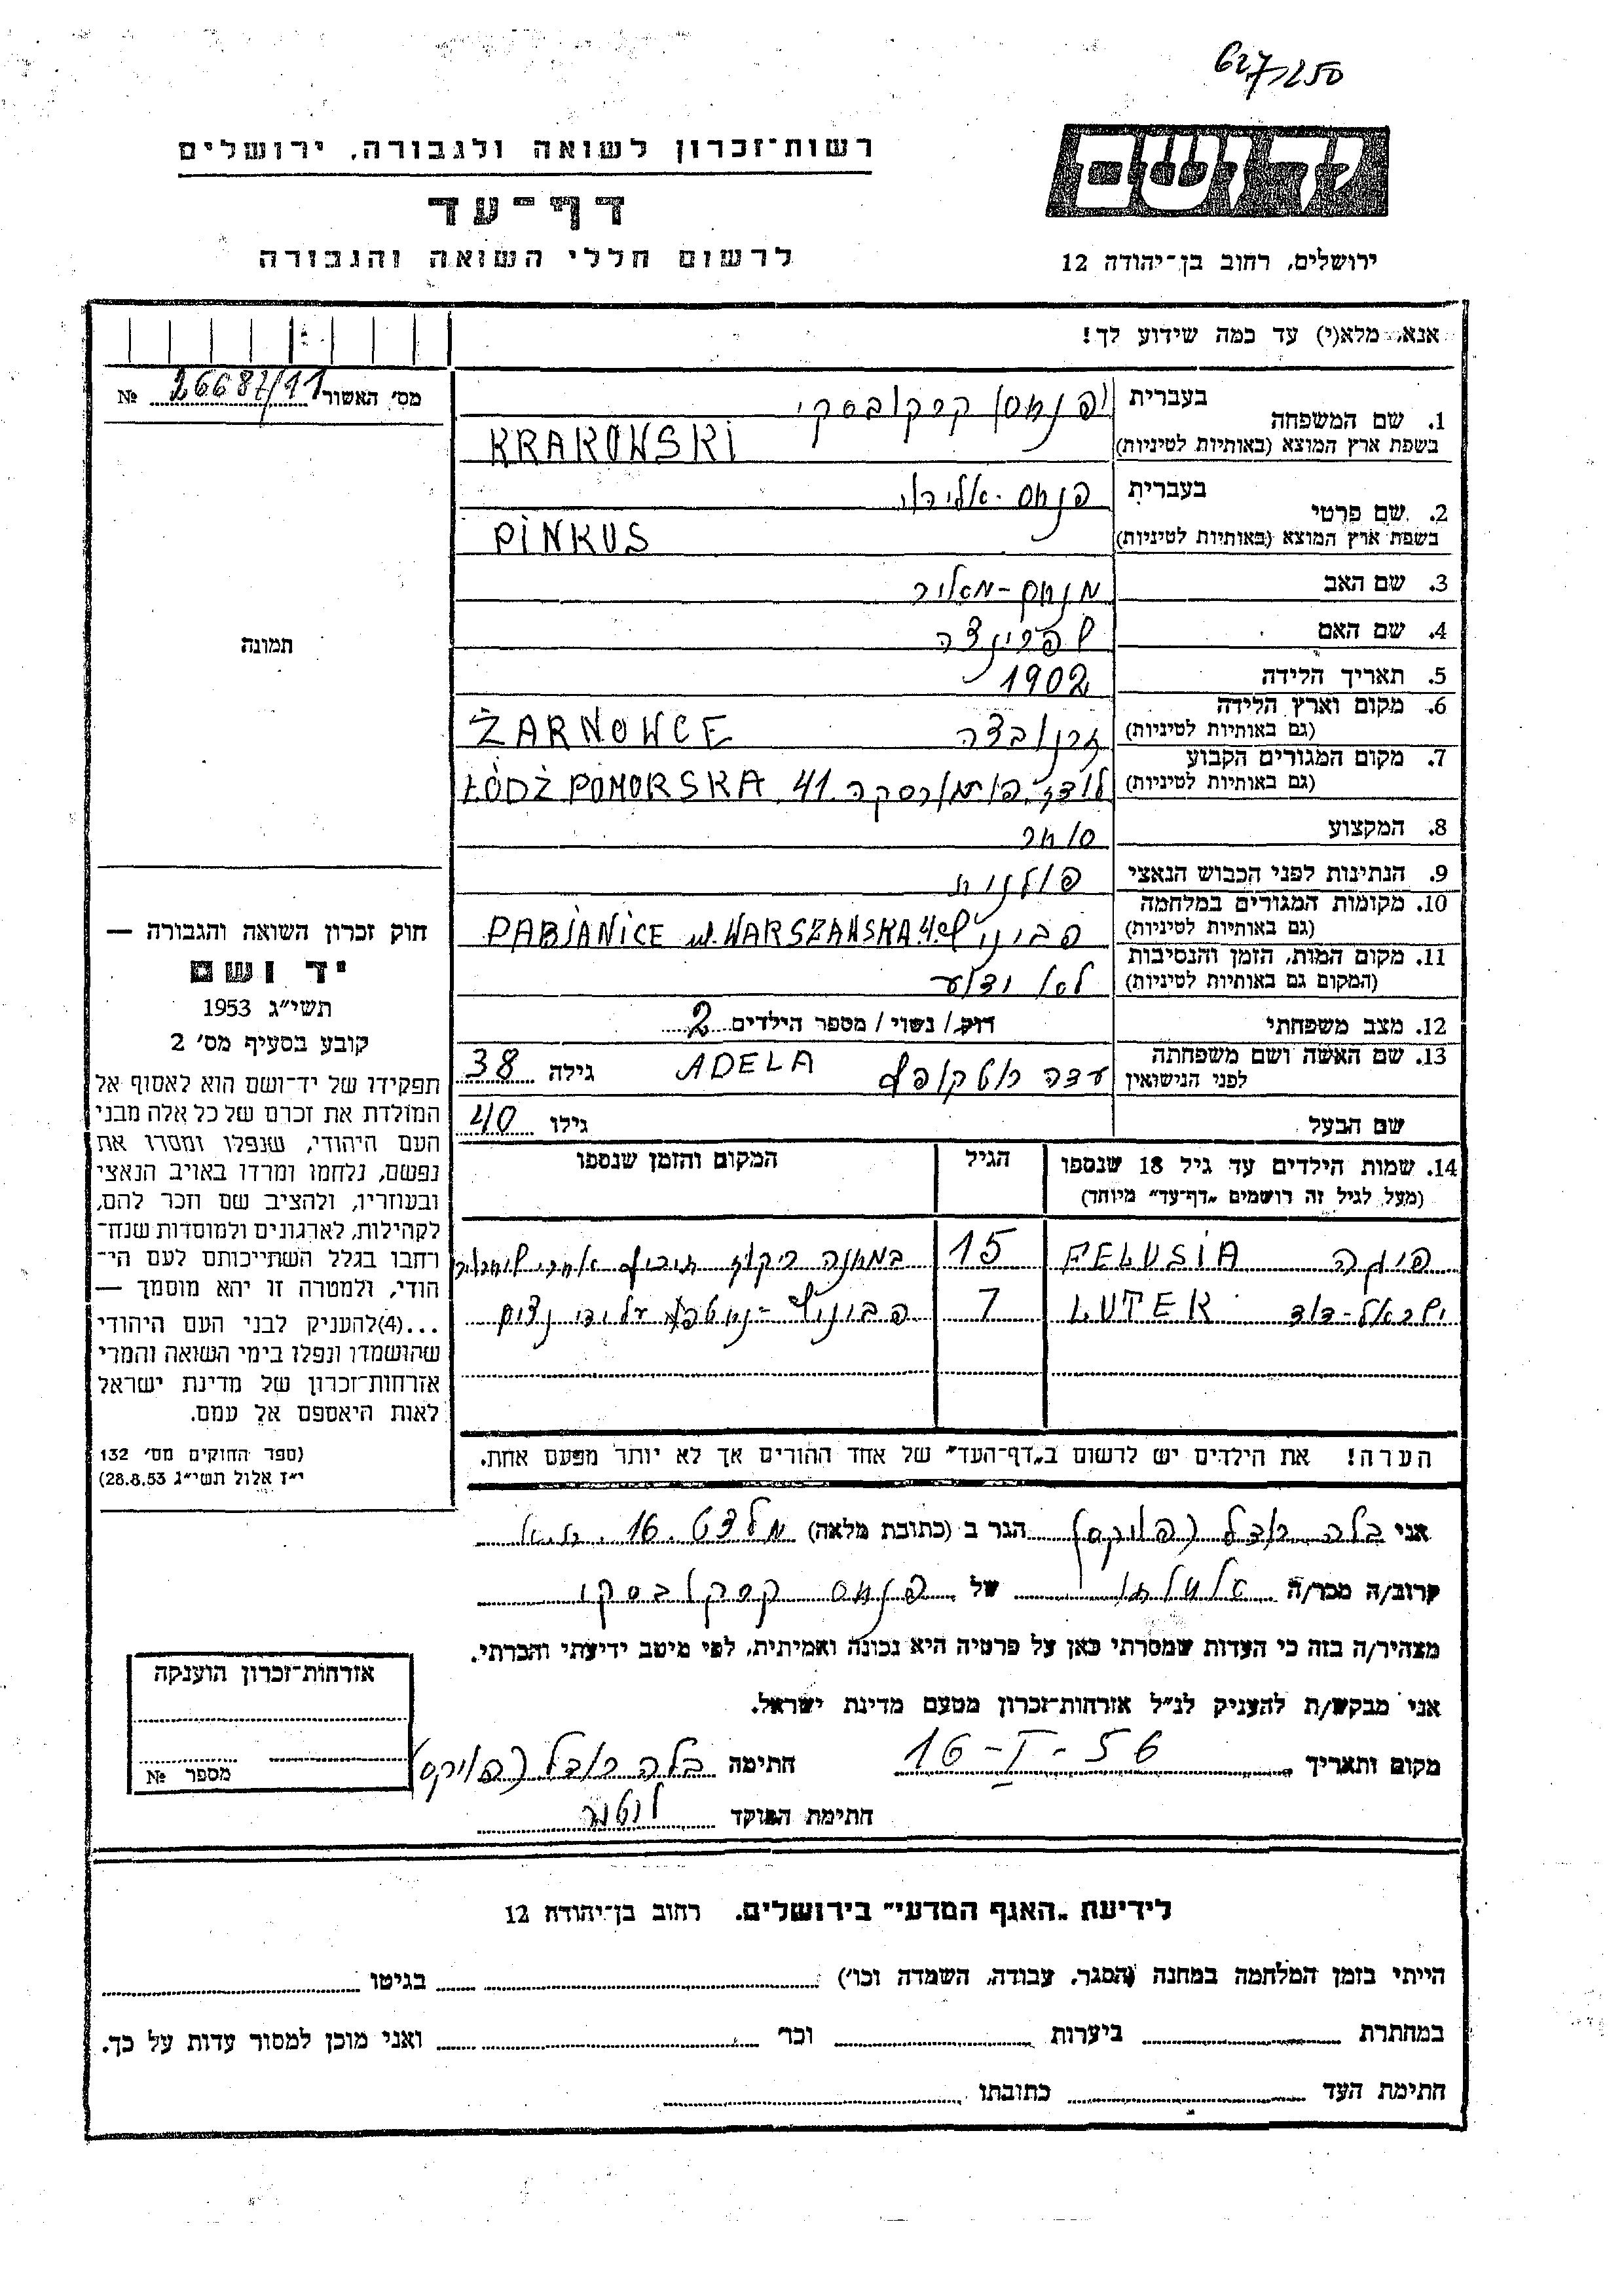 627/250
רשות־זכרון לשואה ולגבורה, ירושלים
יד ושם
דף־עד
לרשום חללי השואה והגבורה
ירושלים, רחוב בן־יהודה 12
אנא, מלא(י) עד כמה שידוע לך!
מס' האשור № 26687/11
1. שם המשפחה בעברית קרקובסקי
בשפת ארץ המוצא (באותיות לטיניות) KRAKOWSKI
2. שם פרטי בעברית פנחס
בשפת ארץ המוצא (באותיות לטיניות) PINKUS
3. שם האב מנחם-מאיר
4. שם האם שפרינצה
5. תאריך הלידה 1902
6. מקום וארץ הלידה (גם באותיות לטיניות) זרנובצה ŻARNOWCE
7. מקום המגורים הקבוע (גם באותיות לטיניות) לודז', פומורסקה 41 ŁÓDŹ POMORSKA
8. המקצוע סוחר
9. הנתינות לפני הכבוש הנאצי פולנית
10. מקומות המגורים במלחמה (גם באותיות לטיניות) PABJANICE ul. WARSZAWSKA
11. מקום המות, הזמן והנסיבות (המקום גם באותיות לטיניות) לא ידוע
12. מצב משפחתי רוק/ נשוי/ מספר הילדים 2
13. שם האשה ושם משפחתה לפני הנישואין ADELA גילה 38
שם הבעל גילו 40
14. שמות הילדים עד גיל 18 שנספו הגיל המקום והזמן שנספו
(מעל לגיל זה רושמים „דף־עד" מיוחד)
FELUSIA 15
ישראל-דוד LUTEK 7
הערה! את הילדים יש לרשום ב„דף־העד" של אחד ההורים אך לא יותר מפעם אחת.
תמונה
חוק זכרון השואה והגבורה —
יד ושם
תשי"ג 1953
קובע בסעיף מס' 2
תפקידו של יד־ושם הוא לאסוף אל
המולדת את זכרם של כל אלה מבני
העם היהודי, שנפלו ומסרו את
נפשם, נלחמו ומרדו באויב הנאצי
ובעוזריו, ולהציב שם וזכר להם,
לקהילות, לארגונים ולמוסדות שנח־
רחבו בגלל השתייכותם לעם הי־
הודי, ולמטרה זו יהא מוסמך —
...(4)להעניק לבני העם היהודי
שהושמדו ונפלו בימי השואה והמרי
אזרחות־זכרון של מדינת ישראל
לאות היאספם אל עמם.
(ספר החוקים מס' 132
י"ז אלול תשי"ג 28.8.53)
אני בלה הגר ב (כתובת מלאה) 16
קרוב/ה מכר/ה של פנחס קרקובסקי
מצהיר/ה בזה כי העדות שמסרתי כאן על פרטיה היא נכונה ואמיתית, לפי מיטב ידיעתי והכרתי.
אני מבקש/ת להעניק לנ"ל אזרחות־זכרון מטעם מדינת ישראל.
מקום ותאריך 16-I-56 חתימה בלה
חתימת הפוקד
אזרחות־זכרון הוענקה
מספר №
לידיעת „האגף המדעי" בירושלים, רחוב בן־יהודה 12
הייתי בזמן המלחמה במחנה (הסגר, עבודה, השמדה וכו') בגיטו
במחתרת ביערות וכו' ואני מוכן למסור עדות על כך.
חתימת העד כתובתו